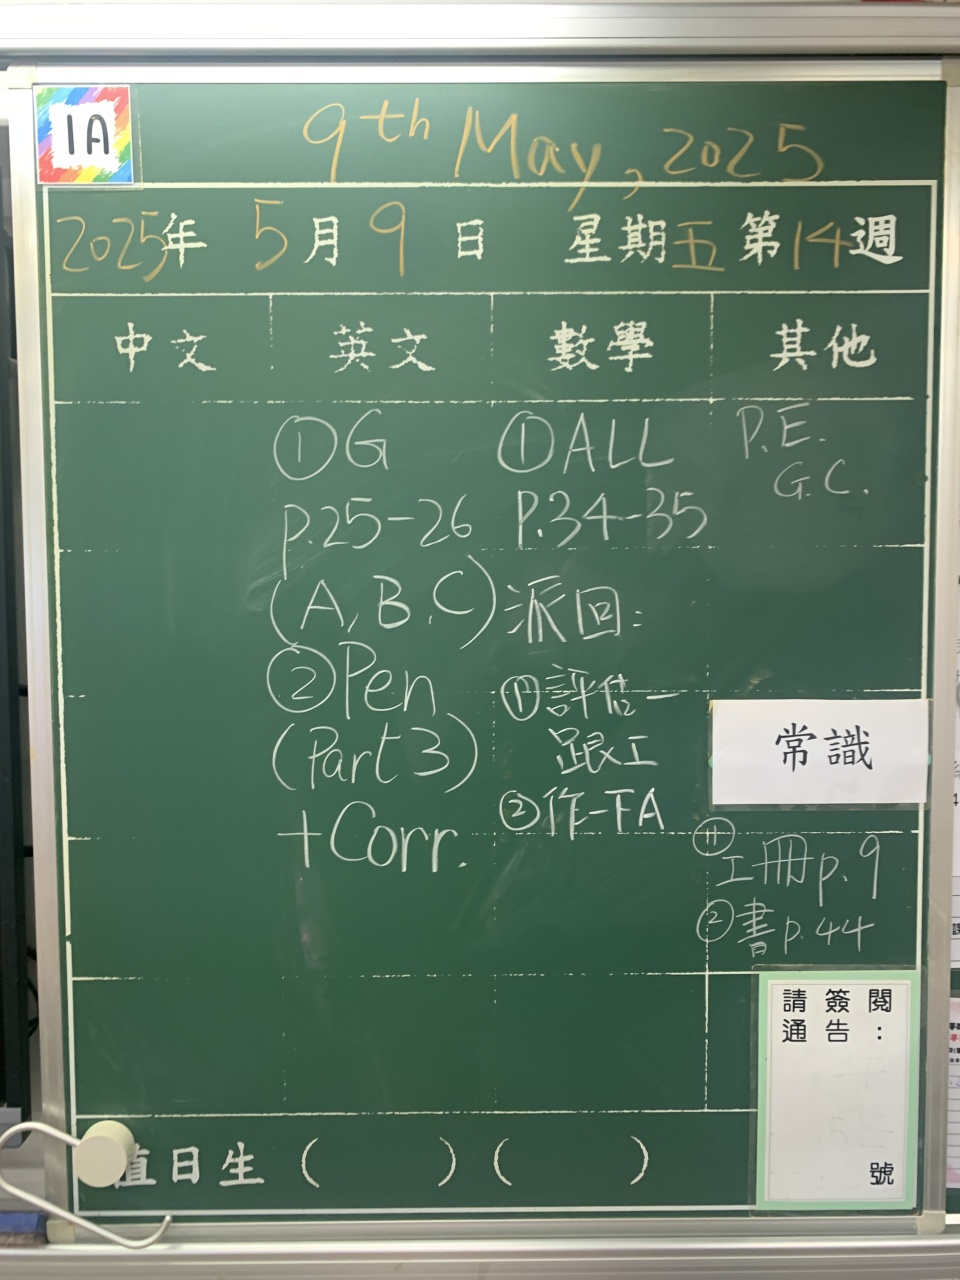 1A
9th May, 2025
2025年 5月 9日 星期五 第14週
中文 英文 數學 其他
①G
p.25-26
(A, B, C)
②Pen
(Part 3)
+Corr.
①ALL
P.34-35
派回:
①評估一
跟工
②作一下A
P.E.
G.C.
常識
①
工冊p.9
②書p.44
請簽閱
通告:
號
值日生 ( ) ( )